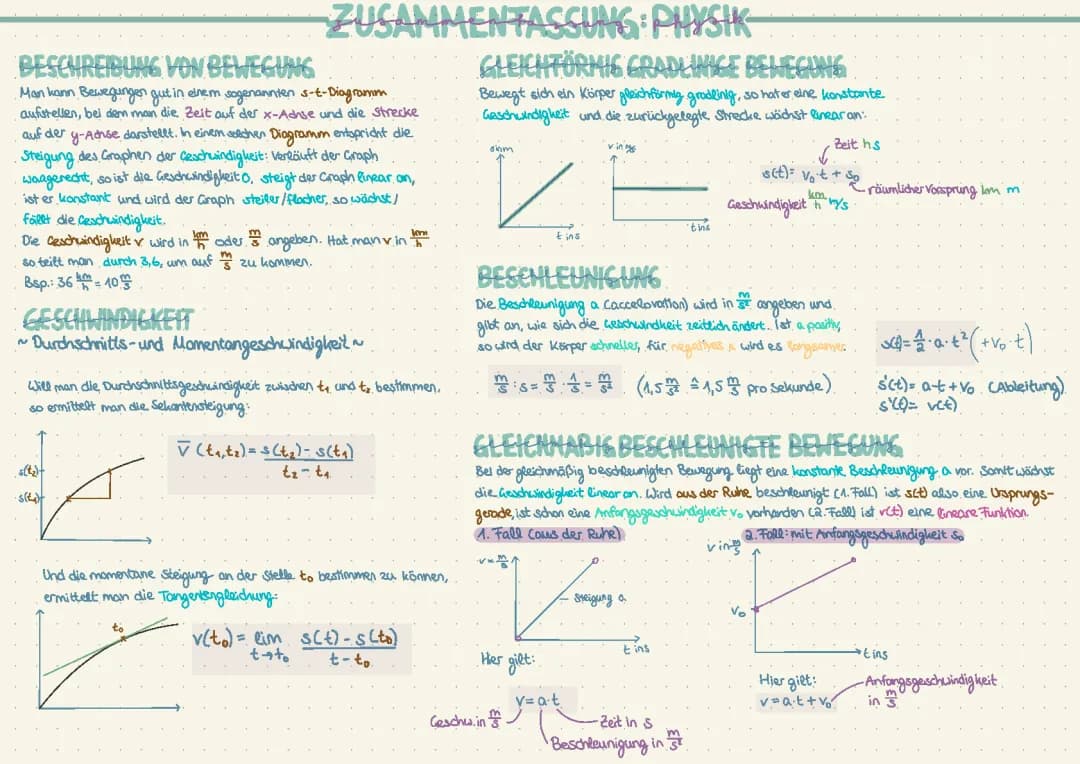 ZUSAMMENFASSUNG: PHYSIK
zusammenfassung: physik
BESCHREIBUNG VON BEWEGUNG
Man kann Bewegungen gut in einem sogenannten s-t-Diagramm
aufstellen, bei dem man die Zeit auf der x-Achse und die Strecke
auf der y-Achse darstellt. In einem solchen Diagramm entspricht die
Steigung des Graphen der Geschwindigkeit: Verläuft der Graph
waagerecht, so ist die Geschwindigkeit 0, steigt der Graph linear an,
ist er konstant und wird der Graph steiler/flacher, so wächst/
fällt die Geschwindigkeit.
Die Geschwindigkeit v wird in km/h oder m/s angeben. Hat man v in km/h
so teilt man durch 3,6, um auf m/s zu kommen.
Bsp.: 36 km/h = 10 m/s
GESCHWINDIGKEIT
~ Durchschnitts- und Momentangeschwindigkeit ~
Will man die Durchschnittsgeschwindigkeit zwischen t₁ und t₂ bestimmen,
so ermittelt man die Sekantensteigung:
s(t₂)
s(t₁)
v̅ (t₁,t₂) = s(t₂) - s(t₁) / t₂ - t₁
Und die momentane Steigung an der Stelle t₀ bestimmen zu können,
ermittelt man die Tangentengleichung:
t₀
v(t₀) = lim t→t₀ s(t) - s(t₀) / t - t₀
GLEICHFÖRMIG GRADLINIGE BEWEGUNG
Bewegt sich ein Körper gleichförmig gradlinig, so hat er eine konstante
Geschwindigkeit und die zurückgelegte Strecke wächst linear an:
t in s
v in
t in s
Zeit h s
s(t) = v₀·t + s₀
räumlicher Vorsprung km m
Geschwindigkeit km/h m/s
BESCHLEUNIGUNG
Die Beschleunigung a (acceleration) wird in m/s² angeben und
gibt an, wie sich die Geschwindkeit zeitlich ändert. Ist a positiv,
so wird der Körper schneller, für negatives a wird es langsamer.
m/s : s = m/s · 1/s = m/s² (1,5 m/s² ≙ 1,5 m/s pro Sekunde)
s(t) = 1/2 · a · t² (+v₀·t)
s'(t) = a·t + v₀ (Ableitung)
s'(t) = v(t)
GLEICHMÄßIG BESCHLEUNIGTE BEWEGUNG
Bei der gleichmäßig beschleunigten Bewegung liegt eine konstante Beschleunigung a vor. Somit wächst
die Geschwindigkeit linear an. Wird aus der Ruhe beschleunigt (1. Fall) ist s(t) also eine Ursprungs-
gerade, ist schon eine Anfangsgeschwindigkeit v₀ vorhanden (2. Fall) ist v(t) eine lineare Funktion.
1. Fall (aus der Ruhe)
v = m/s
Steigung a
t in s
Hier gilt:
v = a·t
Geschw. in m/s
Zeit in s
Beschleunigung in m/s²
2. Fall: mit Anfangsgeschwindigkeit s₀
v in m/s
v₀
t in s
Hier gilt:
v = a·t + v₀
Anfangsgeschwindigkeit
in m/s